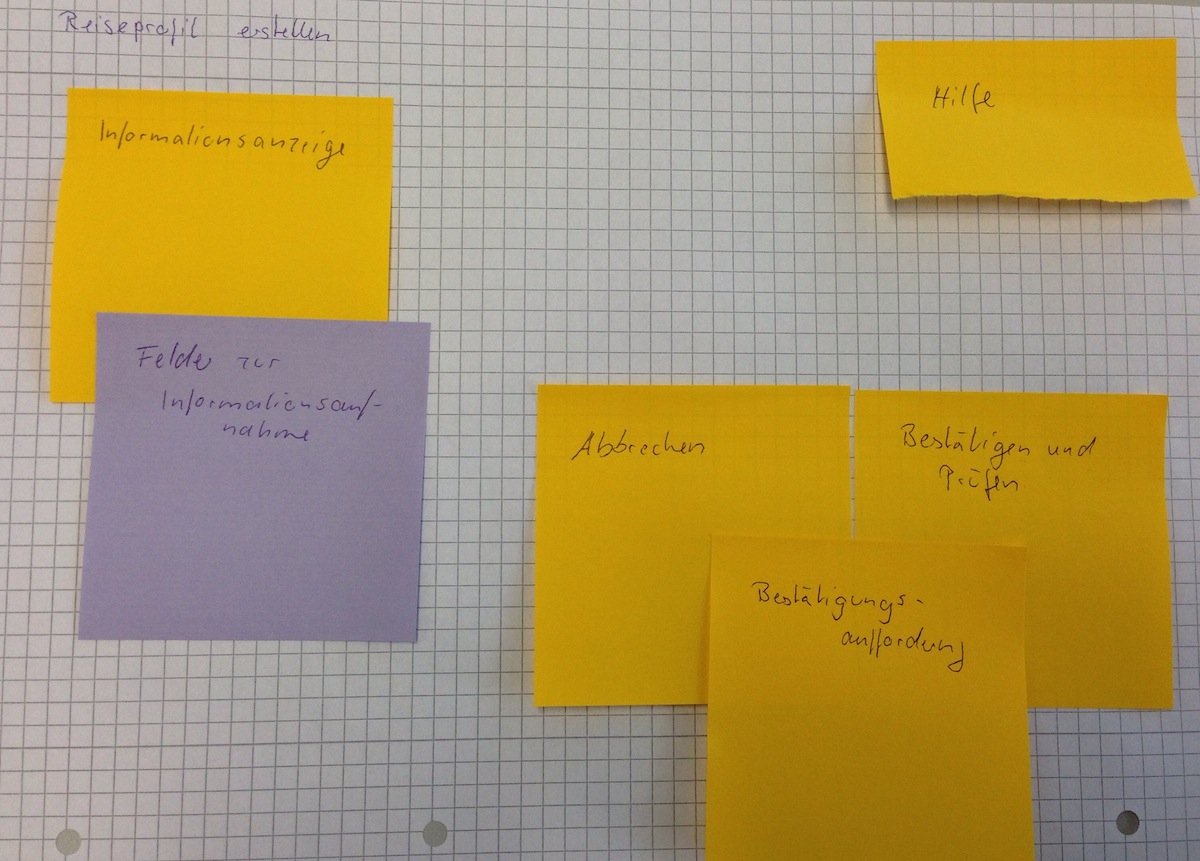 Reiseprofil erstellen
Hilfe
Informationsanzeige
Felder zur
Informationsauf-
nahme
Abbrechen
Bestätigen und
Prüfen
Bestätigungs-
aufforderung